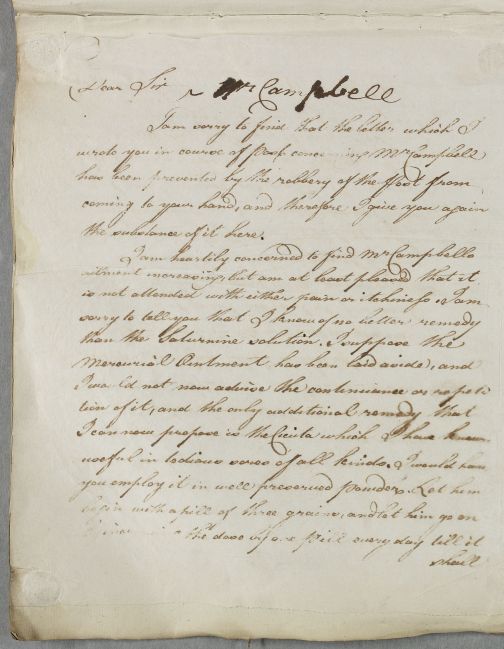 Dear Sir, Mr Campbell
I am sorry to find that the letter which I
wrote you in course of Post concerning Mr Campbell
has been prevented by the robbery of the Post from
coming to your hand, and therefore I give you again
the substance of it here.
I am heartily concerned to find Mr Campbells
ailment increasing, but am at least pleased that it
is not attended with either pain or itchiness. I am
sorry to tell you that I know of no better remedy
than the Saturnine solution. I suppose the
Mercurial Ointment has been laid aside, and
I would not now advise the continuance or repeti
tion of it, and the only additional remedy that
I can now propose is the Cicuta which I have known
useful in tedious sores of all kinds. I would have
you employ it in well preserved powder. Let him
begin with a pill of three grains, and let him go on
the dose of one pill every day till it
shall